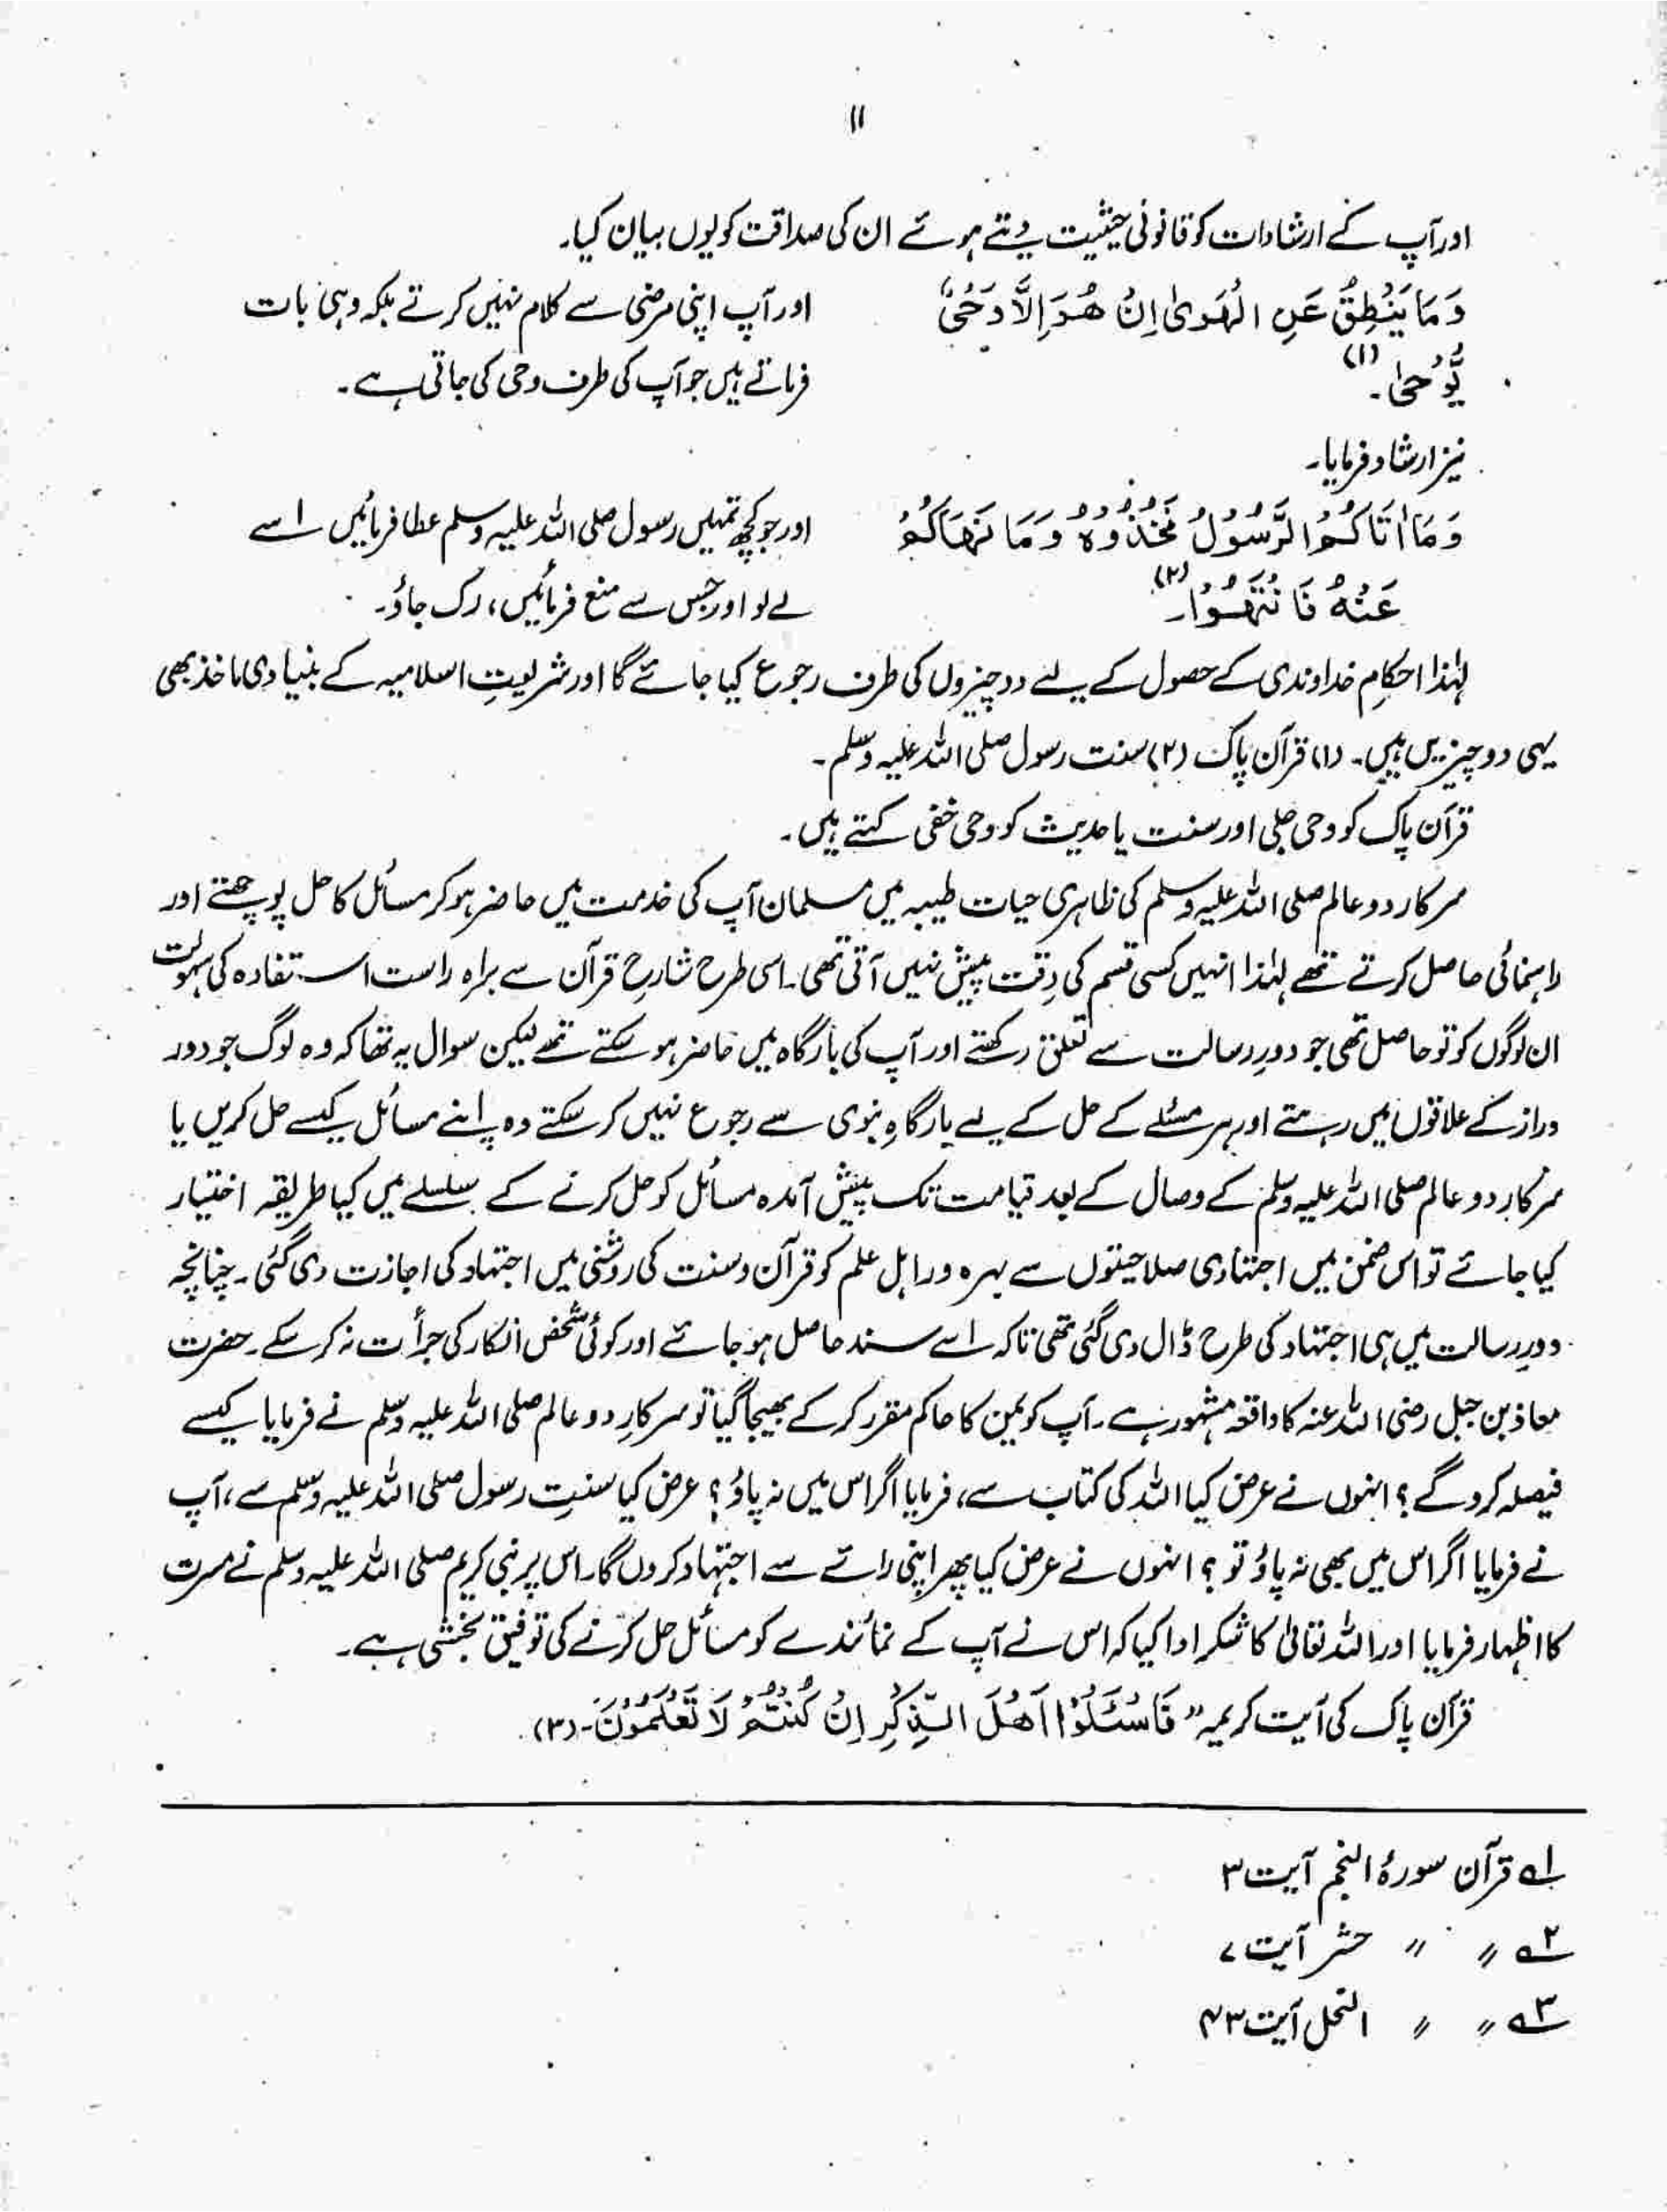 ۱۱
اور آپ کے ارشادات کو قانونی حیثیت دیتے ہوئے ان کی صداقت کو یوں بیان کیا۔
وَمَا یَنْطِقُ عَنِ الْهَوىٰ اِنْ هُوَ اِلَّا وَحْیٌ اور آپ اپنی مرضی سے کلام نہیں کرتے بلکہ وہی بات
یُّوْحیٰ۔ (۱) فرماتے ہیں جو آپ کی طرف وحی کی جاتی ہے۔
نیز ارشاد فرمایا۔
وَمَا اٰتَاکُمُ الرَّسُوْلُ فَخُذُوْهُ وَمَا نَهَاکُمْ اور جو کچھ تمہیں رسول صلی اللہ علیہ وسلم عطا فرمائیں اسے
عَنْهُ فَانْتَهُوْا۔ (۲) لے لو اور جس سے منع فرمائیں، رک جاؤ۔
لہٰذا احکامِ خداوندی کے حصول کے لیے دو چیزوں کی طرف رجوع کیا جائے گا اور شریعتِ اسلامیہ کے بنیادی ماخذ بھی
یہی دو چیزیں ہیں۔ (۱) قرآن پاک (۲) سنت رسول صلی اللہ علیہ وسلم۔
قرآن پاک کو وحی جلی اور سنت یا حدیث کو وحی خفی کہتے ہیں۔
سرکار دو عالم صلی اللہ علیہ وسلم کی ظاہری حیات طیبہ میں مسلمان آپ کی خدمت میں حاضر ہو کر مسائل کا حل پوچھتے اور
راہنمائی حاصل کرتے تھے لہٰذا انہیں کسی قسم کی دِقت پیش نہیں آتی تھی۔ اسی طرح شارحِ قرآن سے براہ راست استفادہ کی سہولت
ان لوگوں کو تو حاصل تھی جو دورِ رسالت سے تعلق رکھتے اور آپ کی بارگاہ میں حاضر ہو سکتے تھے لیکن سوال یہ تھا کہ وہ لوگ جو دور
دراز کے علاقوں میں رہتے اور ہر مسئلے کے حل کے لیے بارگاہِ نبوی سے رجوع نہیں کر سکتے وہ اپنے مسائل کیسے حل کریں یا
سرکارِ دو عالم صلی اللہ علیہ وسلم کے وصال کے بعد قیامت تک پیش آمدہ مسائل کو حل کرنے کے سلسلے میں کیا طریقہ اختیار
کیا جائے تو اس ضمن میں اجتہادی صلاحیتوں سے بہرہ ور اہل علم کو قرآن و سنت کی روشنی میں اجتہاد کی اجازت دی گئی۔ چنانچہ
دورِ رسالت میں ہی اجتہاد کی طرح ڈال دی گئی تھی تاکہ اسے سند حاصل ہو جائے اور کوئی شخص انکار کی جرأت نہ کر سکے۔ حضرت
معاذ بن جبل رضی اللہ عنہ کا واقعہ مشہور ہے۔ آپ کو یمن کا حاکم مقرر کر کے بھیجا گیا تو سرکارِ دو عالم صلی اللہ علیہ وسلم نے فرمایا کیسے
فیصلہ کرو گے؟ انہوں نے عرض کیا اللہ کی کتاب سے، فرمایا اگر اس میں نہ پاؤ؟ عرض کیا سنتِ رسول صلی اللہ علیہ وسلم سے، آپ
نے فرمایا اگر اس میں بھی نہ پاؤ تو؟ انہوں نے عرض کیا پھر اپنی رائے سے اجتہاد کروں گا۔ اس پر نبی کریم صلی اللہ علیہ وسلم نے مسرت
کا اظہار فرمایا اور اللہ تعالیٰ کا شکر ادا کیا کہ اس نے آپ کے نمائندے کو مسائل حل کرنے کی توفیق بخشی ہے۔
قرآن پاک کی آیت کریمہ "فَاسْئَلُوْا اَهْلَ الذِّکْرِ اِنْ کُنْتُمْ لَا تَعْلَمُوْنَ۔ (۳)
۱؎ قرآن سورۂ النجم آیت ۳
۲؎ 〃 〃 حشر آیت ۷
۳؎ 〃 〃 النحل آیت ۴۳